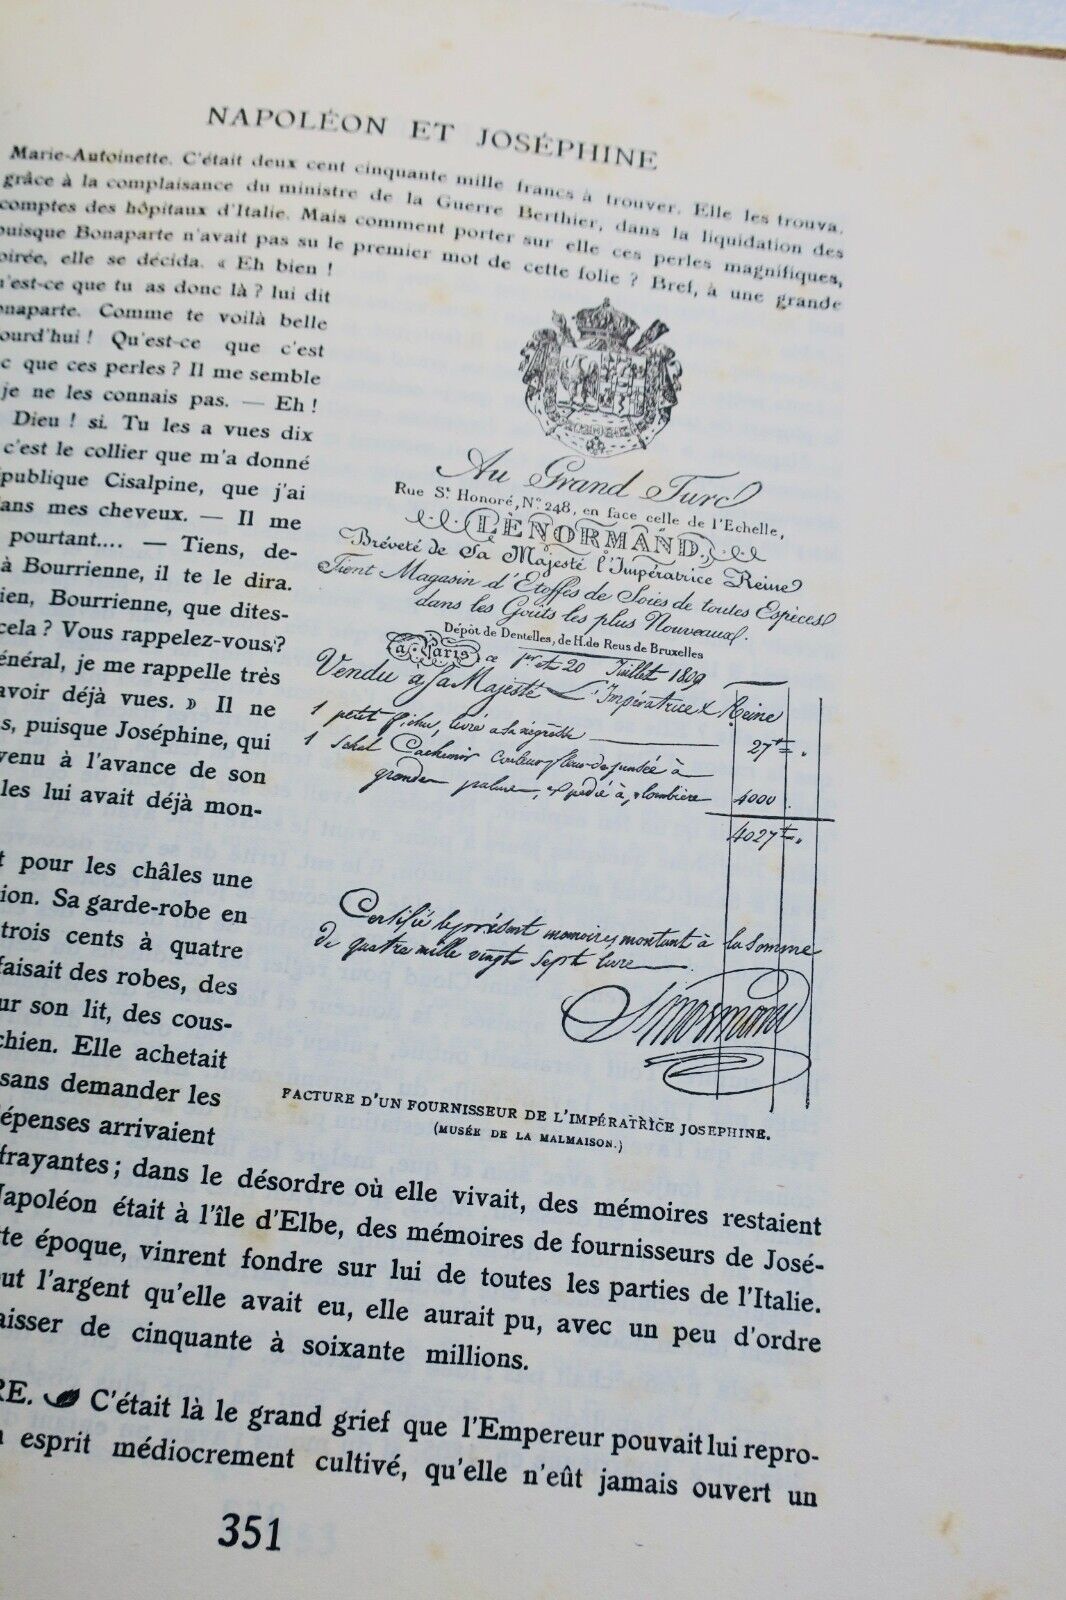 NAPOLÉON ET JOSÉPHINE
Marie-Antoinette. C'était deux cent cinquante mille francs à trouver. Elle les trouva,
grâce à la complaisance du ministre de la Guerre Berthier, dans la liquidation des
comptes des hôpitaux d'Italie. Mais comment porter sur elle ces perles magnifiques,
puisque Bonaparte n'avait pas su le premier mot de cette folie ? Bref, à une grande
oirée, elle se décida. « Eh bien !
'est-ce que tu as donc là ? lui dit
onaparte. Comme te voilà belle
ourd'hui ! Qu'est-ce que c'est
c que ces perles ? Il me semble
je ne les connais pas. — Eh !
Dieu ! si. Tu les a vues dix
c'est le collier que m'a donné
épublique Cisalpine, que j'ai
ans mes cheveux. — Il me
pourtant.... — Tiens, de-
à Bourrienne, il te le dira.
ien, Bourrienne, que dites-
cela ? Vous rappelez-vous ?
énéral, je me rappelle très
avoir déjà vues. » Il ne
s, puisque Joséphine, qui
venu à l'avance de son
les lui avait déjà mon-
t pour les châles une
ion. Sa garde-robe en
trois cents à quatre
faisait des robes, des
ur son lit, des cous-
chien. Elle achetait
sans demander les
épenses arrivaient
Au Grand Turc
Rue St. Honoré, No. 248, en face celle de l'Echelle,
LENORMAND,
Bréveté de Sa Majesté l'Impératrice Reine
Tient Magasin d'Etoffes de Soies de toutes Espèces
dans les Goûts les plus Nouveaux.
Dépôt de Dentelles, de H. de Reus de Bruxelles
à Paris ce 1er et 20 Juillet 1809
Vendu a Sa Majesté L'Impératrice & Reine
1 petit fichu, livré a la négrette 27
1 schal Cachemir couleur fleur de pensée à
grandes palmes, expédié à plombière 4000
4027
Certifié le présent memoires montant à la somme
de quatre mille vingt sept livre
Lenormand
FACTURE D'UN FOURNISSEUR DE L'IMPÉRATRICE JOSEPHINE.
(MUSÉE DE LA MALMAISON.)
frayantes ; dans le désordre où elle vivait, des mémoires restaient
Napoléon était à l'île d'Elbe, des mémoires de fournisseurs de José-
te époque, vinrent fondre sur lui de toutes les parties de l'Italie.
out l'argent qu'elle avait eu, elle aurait pu, avec un peu d'ordre
aisser de cinquante à soixante millions.
RE. C'était là le grand grief que l'Empereur pouvait lui repro-
n esprit médiocrement cultivé, qu'elle n'eût jamais ouvert un
351